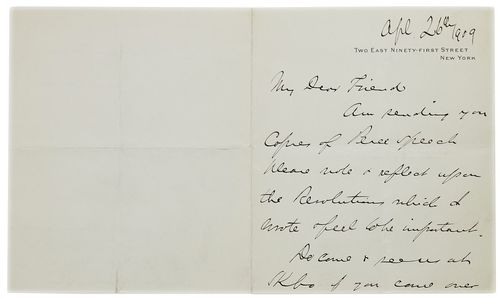 Apl 26th 1909
TWO EAST NINETY-FIRST STREET
NEW YORK
My Dear Friend
Am sending you
Copies of Peace Speech
Please note & reflect upon
the Resolutions which I
wrote & feel to be important.
Do come & see us at
Skibo if you come over